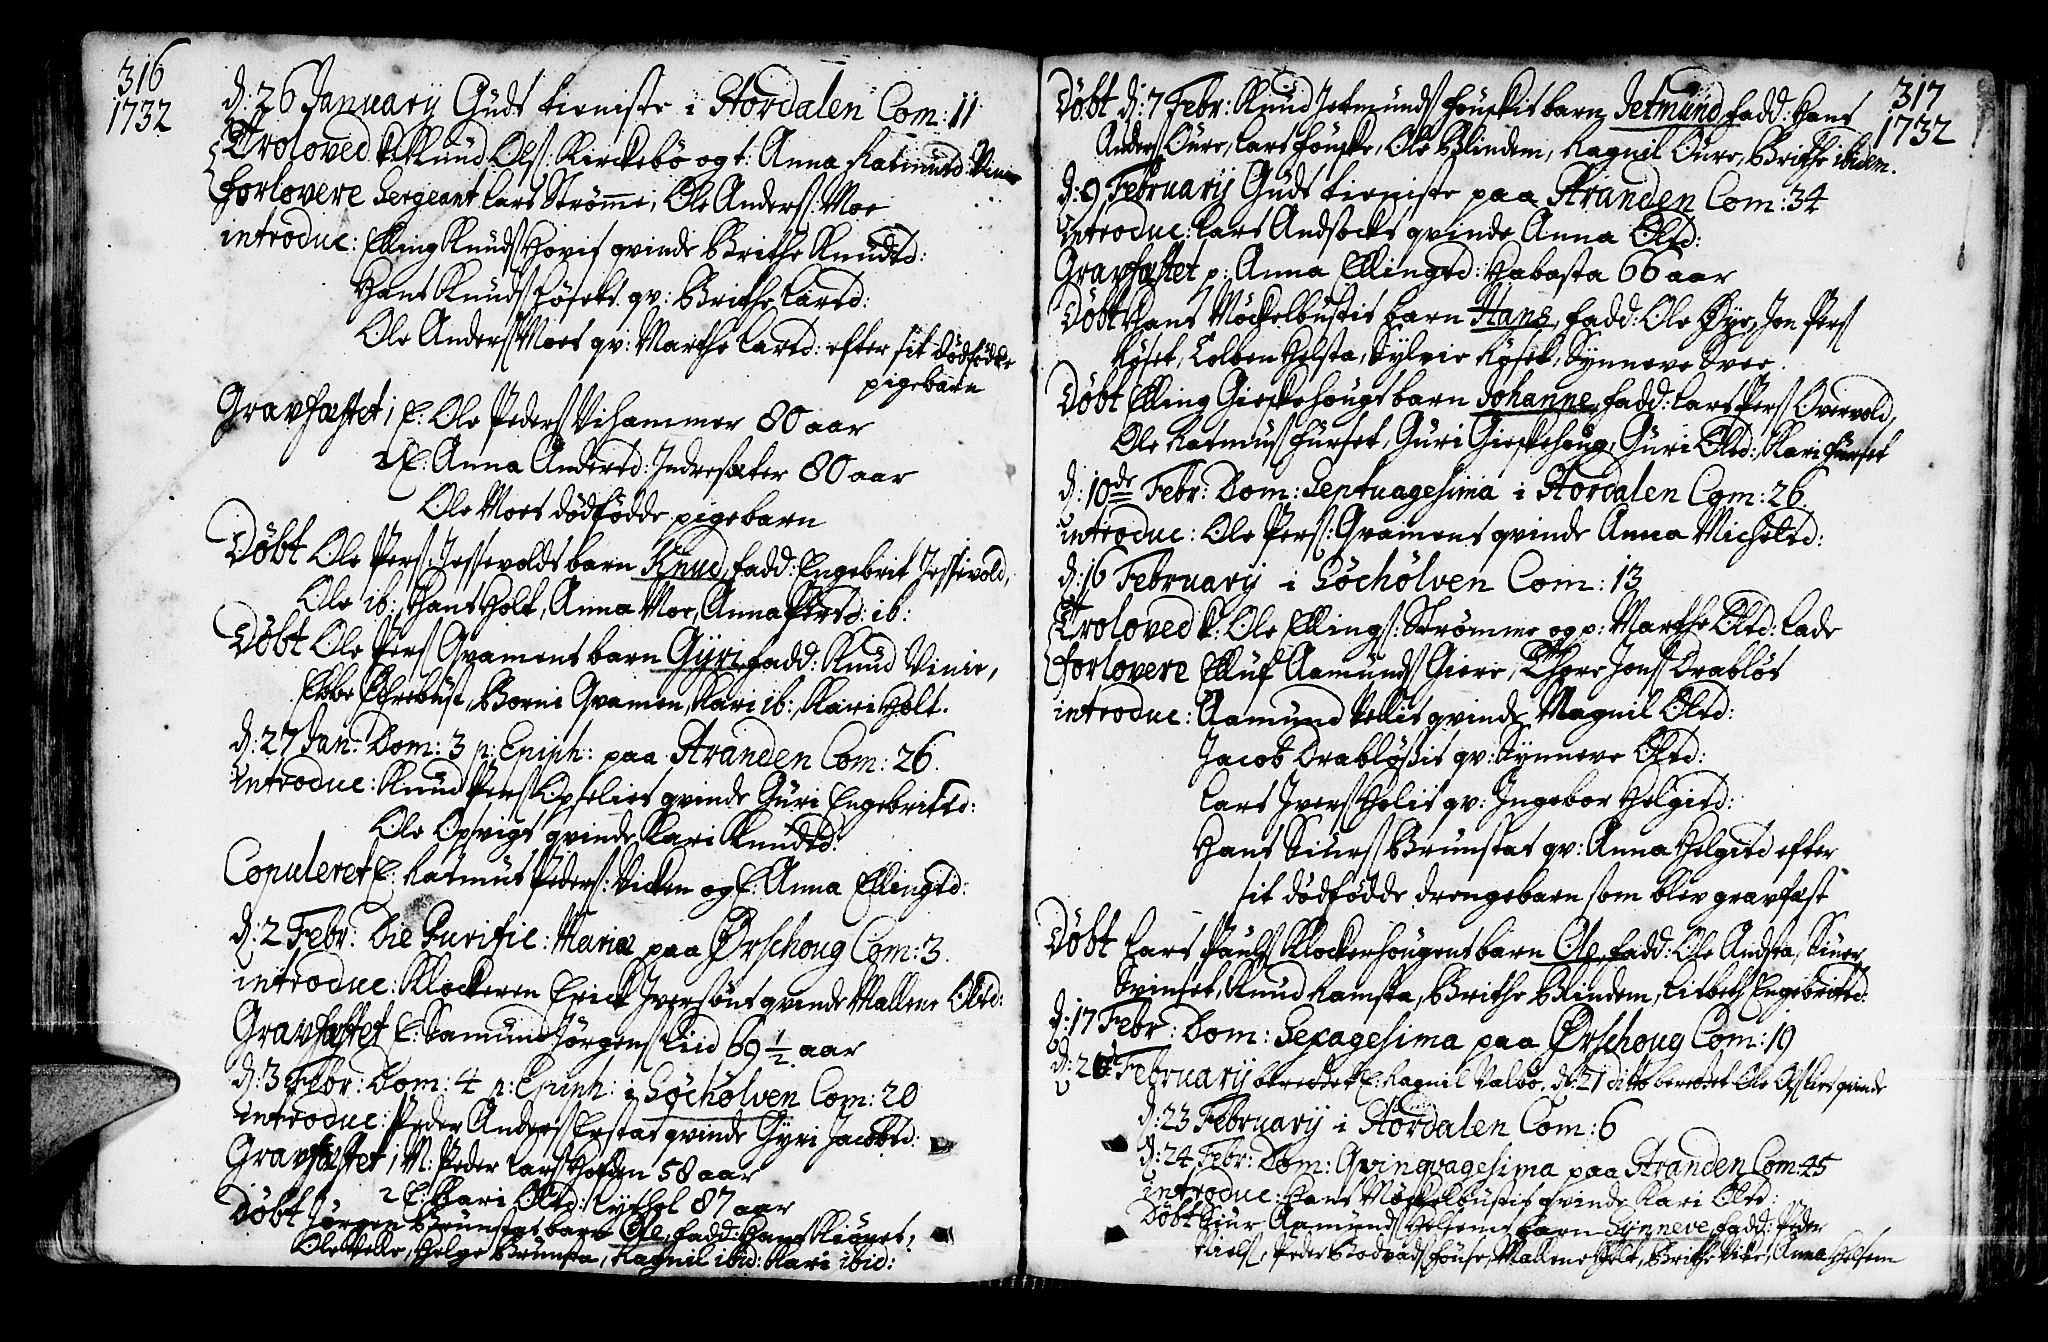 316
1732
d: 26 Januarij Guds tieniste i Stordalen Com: 11
Troloved k: Knud Ols: Kirkebö og p: Anna Rasmusd: Vinie
forlovere Sergeant Lars Strömme, Ole Anders: Moe
introduc: Elling Knuds Hovis qvinde Brithe Knudsd:
Hans Knuds qv: Brithe Larsd:
Ole Anders Moes qv: Marthe Larsd: efter sit dödfödte
pigebarn
Gravfæstet 1 E: Ole Peders Vihammer 80 aar
2 E: Anna Andersd: Indresæter 80 aar
Ole Moes dödfödde pigebarn
Döbt Ole Pers: Jssevolds barn Knud, fadd: Engebrit Jssevold,
Ole ib:, Hans Holt, Anna Moe, Anna Persd: ib:
Döbt Ole Pers Qvamens barn Gyri, fadd: Knud Vinie,
Ebbe, Borni Qvamen, Kari ib:, Kari Holt.
d: 27 Jan: Dom: 3 p: Epiph: paa Stranden Com: 26.
introduc: Knud Pers Opselies qvinde Guri Engebritsd:
Ole Opvigs qvinde Kari Knudsd:
Copuleret E: Rasmus Peders: Vicken og E: Anna Ellingsd:
d: 2 Febr: Die Purific: Mariæ paa Örschoug Com: 3.
introduc: Klockeren Erick Jversöns qvinde Mallene Olsd:
Gravfæstet E: Samund Jörgens Liid 69 1/2 aar
d: 3 Febr: Dom: 4 p: Epiph: i Söchölven Com: 20
introduc: Peder Anders qvinde Gyri Jacobsd:
Gravfæstet 1 M: Peder Lars Hofden 58 aar
2 E: Kari Olsd: 87 aar
Döbt Jörgen Brunstas barn Ole, fadd: Hans,
Ole Velle, Helge Brunsta, Ragnil ibid: Kari ibid:
317
1732
Döbt d: 7 Febr: Knud Jetmunds barn Jetmund, fadd: Hans
Anders Öure, Lars, Ole Blindem, Ragnil Öure, Brithe ibidem.
d: 9 Februarij Guds tieniste paa Stranden Com: 34
introduc: Lars qvinde Anna Olsd:
Gravfæstet p: Anna Ellingsd: Habosta 66 aar
Döbt Hans Möckelbustis barn Hans, fadd: Ole Öye, Jon Pers
Röset, Colben, Sylvie Röset, Synneve Svee.
Döbt Elling Gieskehougs barn Johanne, fadd: Lars Pers Overvold,
Ole Rasmus Furset, Guri Gieskehoug, Guri Olsd:, Kari Furset
d: 10de Febr: Dom: Septuagesima i Stordalen Com: 26
introduc: Ole Pers: Qvamens qvinde Anna Michelsd:
d: 16 Februarij i Söchölven Com: 13
Troloved k: Ole Ellings: Strömme og p: Marthe Olsd: Lade
forlovere Elluf Aamunds Giere, Thore Jons Drablös
introduc: Aamund Vellis qvinde Magnil Olsd:
Jacob Drablösis qv: Synneve Olsd:
Lars Jvers Holis qv: Ingebor Helgisd:
Hans Siurs Brunstas qv: Anna Helgisd efter
sit dödfödde drengebarn som blev gravfæst
Döbt Lars Pauls Klockerhougens barn Ole, fadd: Ole Andsta, Siuer
Svinset, Knud Ramsta, Brithe Blindem, Lisbeth Engebritsd:
d: 17 Febr: Dom: Sexagesima paa Örschoug Com: 19
d: 20 Februarij berettet E: Ragnil Valöe, d: 21 dito berettet Ole qvinde
d: 23 Februarij i Stordalen Com: 6
d: 24 Febr: Dom: Qvinqvagesima paa Stranden Com: 45
introduc: Hans Möckelbustis qvinde Kari Olsd:
Döbt Siur Aamunds Helsems barn Synneve, fadd: Peder
Niels, Peder Bodvads, Mallene Holt, Brithe, Anna Helsem